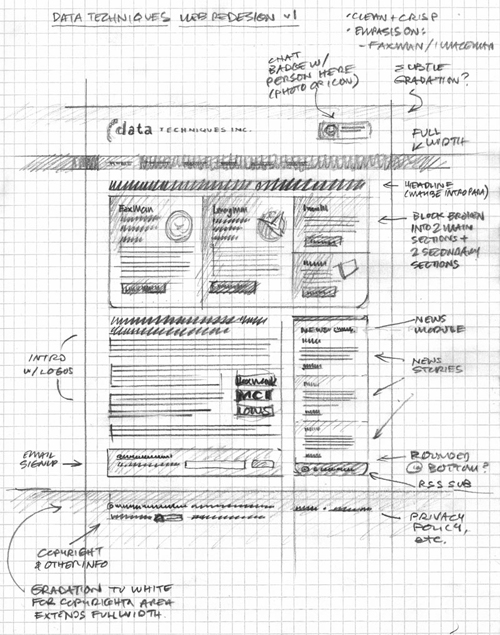 DATA TECHNIQUES WEB REDESIGN v1
• CLEAN + CRISP
• EMPHASIS ON:
- FAXMAN /
CHAT
BADGE W/
PERSON HERE
(PHOTO OR ICON)
SUBTLE
GRADATION?
data TECHNIQUES INC.
FULL
WIDTH
HEADLINE
(MAYBE INTRO PARA)
FaxMan
BLOCK BROKEN
INTO 2 MAIN
SECTIONS +
2 SECONDARY
SECTIONS
NEWS
MODULE
INTRO
W/ LOGOS
NEWS
STORIES
EMAIL
SIGNUP
ROUNDED
@ BOTTOM?
RSS SUB
COPYRIGHT
& OTHER INFO
PRIVACY
POLICY,
ETC.
GRADATION TO WHITE
FOR COPYRIGHT AREA
EXTENDS FULL WIDTH.